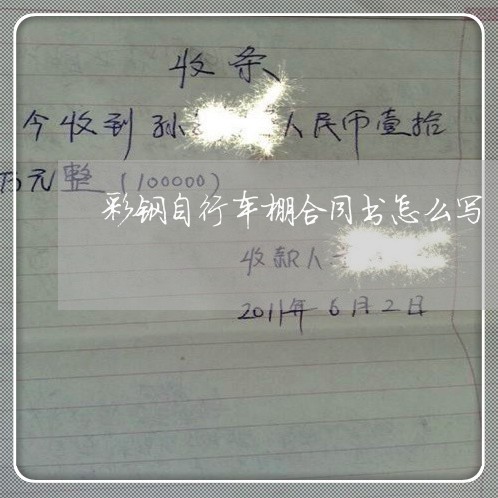 收条
今收到孙 人民币壹拾
万元整（100000）
彩钢自行车棚合同书怎么写
收款人
2011年6月2日